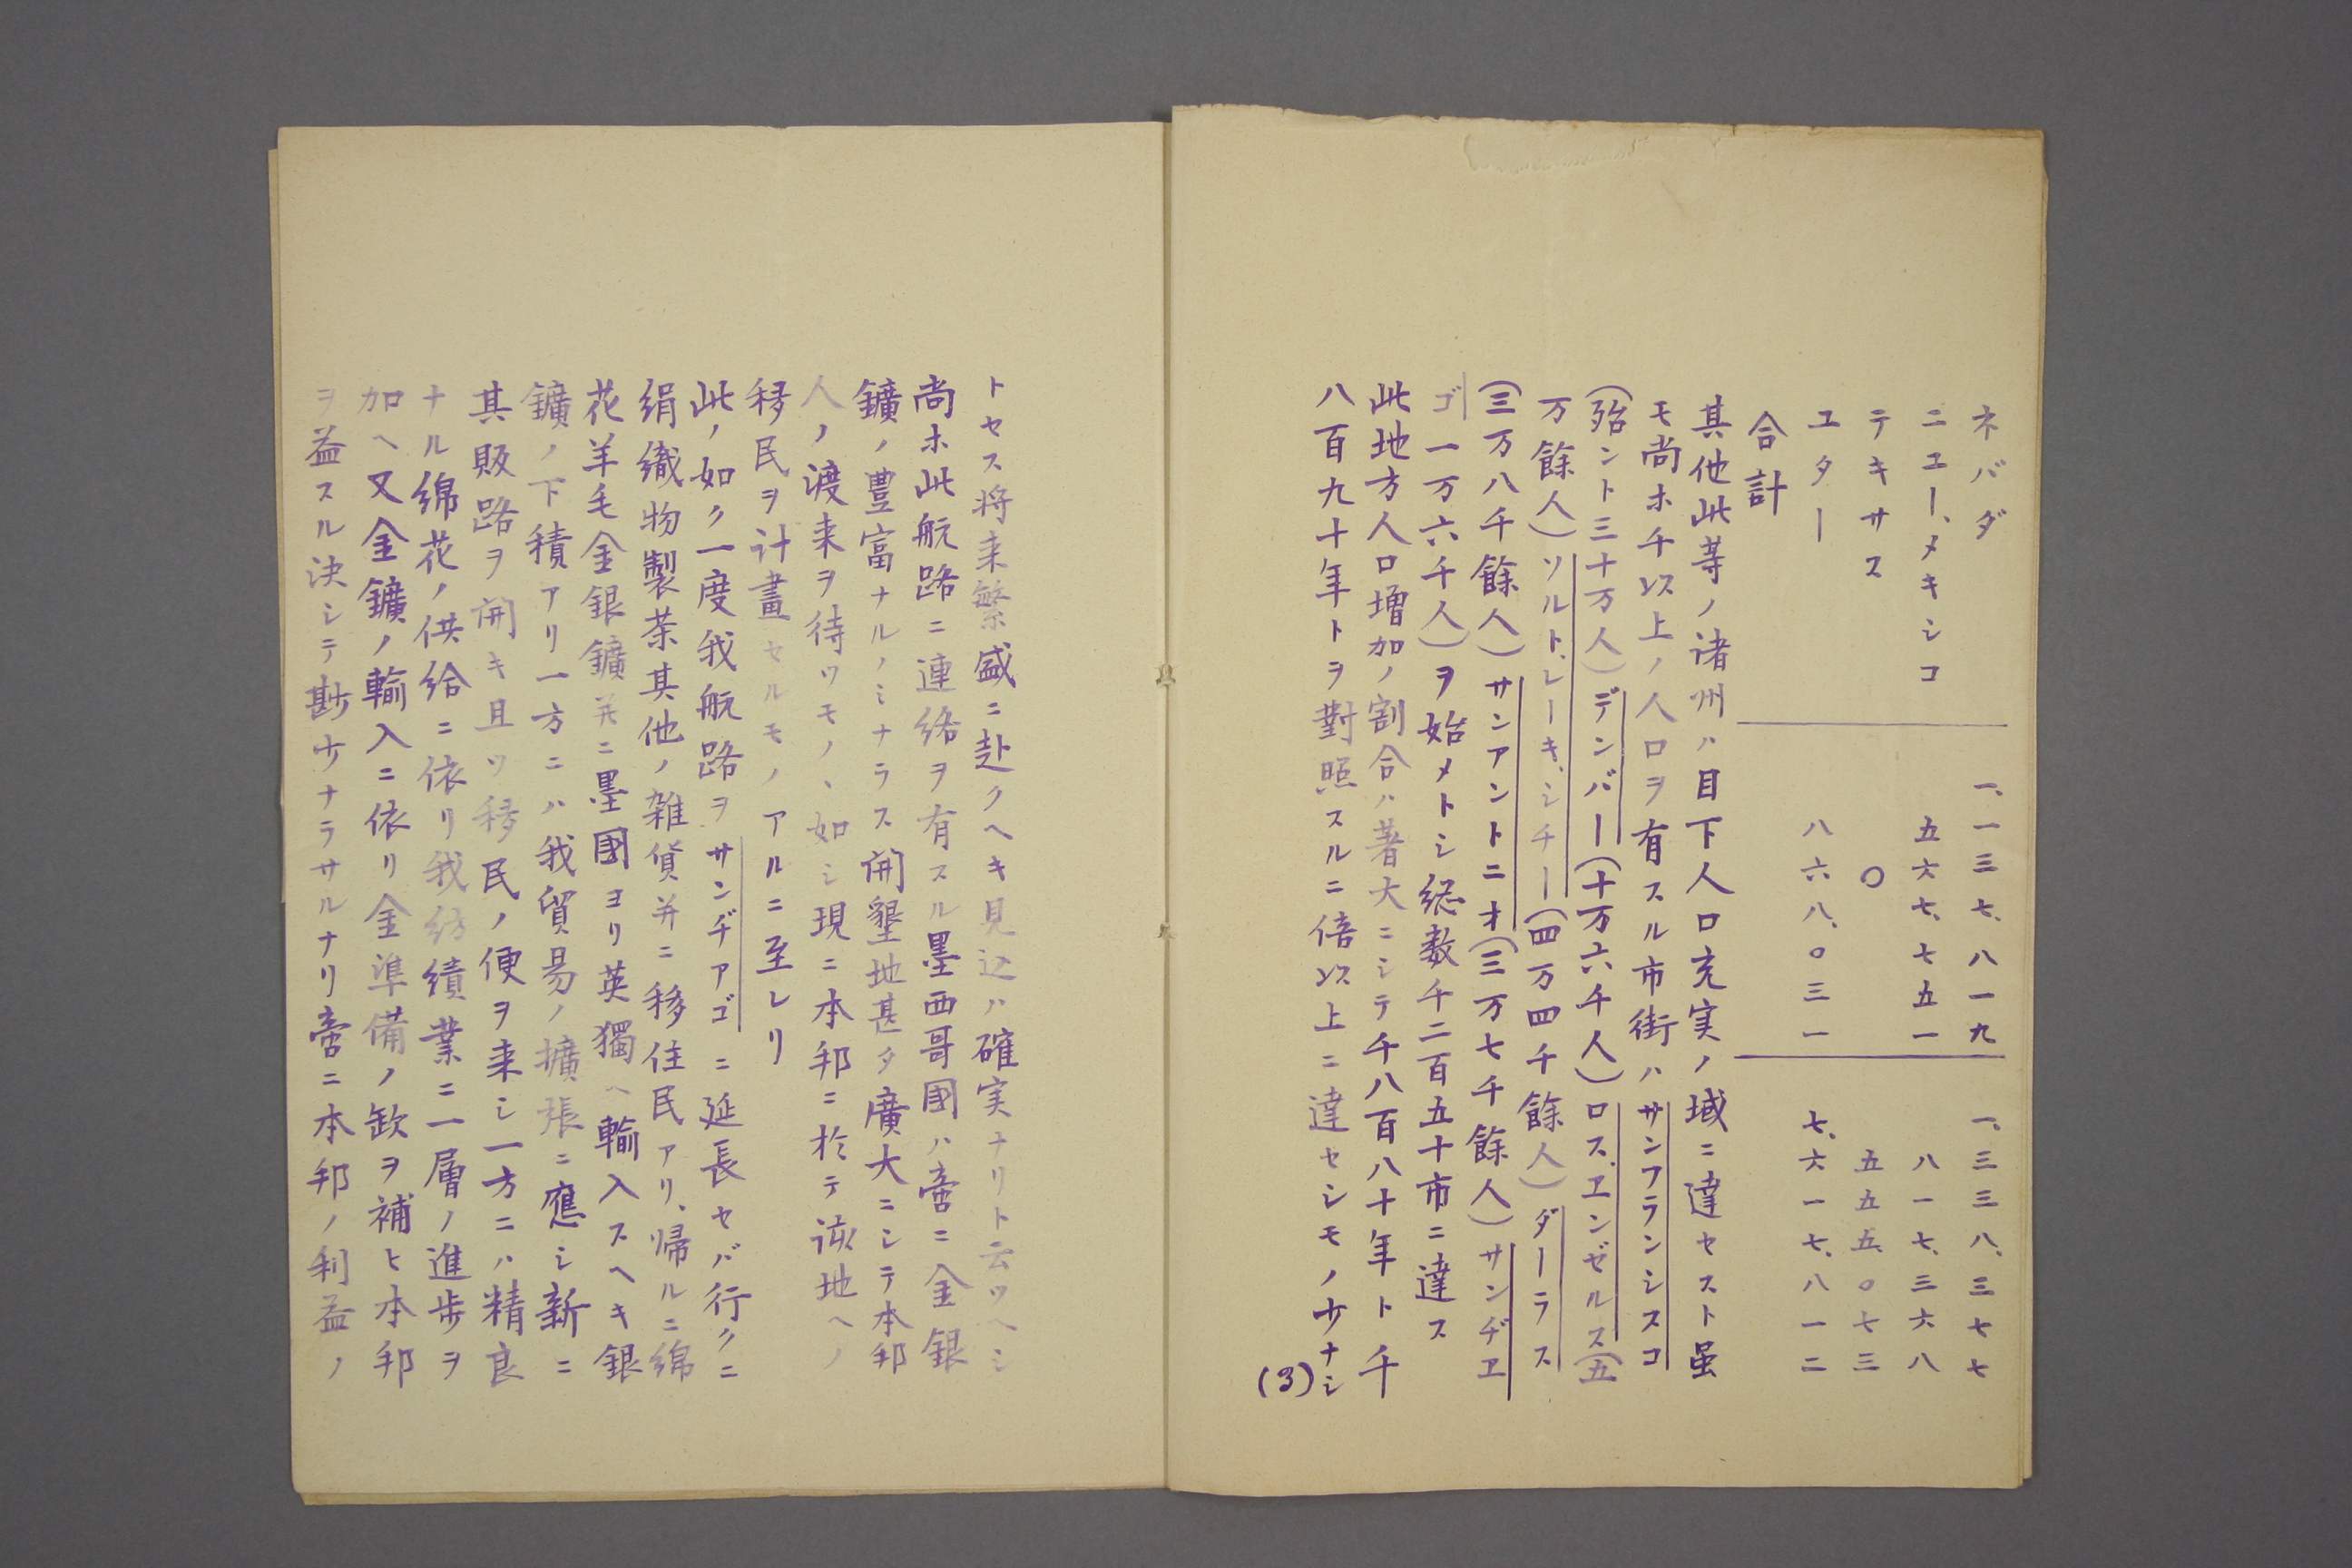 ネバダ 一、一三七、八一九 一、三三八、三七七
ニユー、メキシコ 五六七、七五一 八一七、三六八
テキサス 〇 五五五、〇七三
ユター 八六八、〇三一 七、六一七、八一二
合計
其他此等ノ諸州ハ目下人口充実ノ域ニ達セスト虽
モ尚ホ千以上ノ人口ヲ有スル市街ハサンフランシスコ
(殆ント三十万人)デンバー(十万六千人)ロス、エンゼルス(五
万餘人)ソルト、レーキ、シチー(四万四千餘人)ダーラス
(三万八千餘人)サンアントニオ(三万七千餘人)サンヂエ
ゴ一万六千人)ヲ始メトシ総数千二百五十市ニ達ス
此地方人口増加ノ割合ハ著大ニシテ千八百八十年ト千
八百九十年トヲ對照スルニ倍以上ニ達セシモノ少ナシ
(3)
トセス将来繁盛ニ赴クヘキ見込ハ確実ナリト云ツヘシ
尚ホ此航路ニ連絡ヲ有スル墨西哥國ハ啻ニ金銀
鑛ノ豊富ナルノミナラス開墾地甚タ廣大ニシテ本邦
人ノ渡来ヲ待ツモノヽ如シ現ニ本邦ニ於テ該地ヘノ
移民ヲ計畫セルモノアルニ至レリ
此ノ如ク一度我航路ヲサンヂアゴニ延長セバ行クニ
絹織物製茶其他ノ雑貨并ニ移住民アリ、帰ルニ綿
花羊毛金銀鑛并ニ墨國ヨリ英獨ヘ輸入スヘキ銀
鑛ノ下積アリ一方ニハ我貿易ノ擴張ニ應シ新ニ
其販路ヲ開キ且ツ移民ノ便ヲ来シ一方ニハ精良
ナル綿花ノ供給ニ依リ我紡績業ニ一層ノ進歩ヲ
加ヘ又金鑛ノ輸入ニ依リ金準備ノ欽ヲ補ヒ本邦
ヲ益スル決シテ尠少ナラサルナリ啻ニ本邦ノ利益ノ